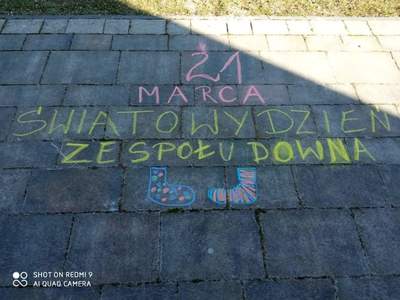 21
MARCA
ŚWIATOWY DZIEŃ
ZESPOŁU DOWNA
SHOT ON REDMI 9
AI QUAD CAMERA